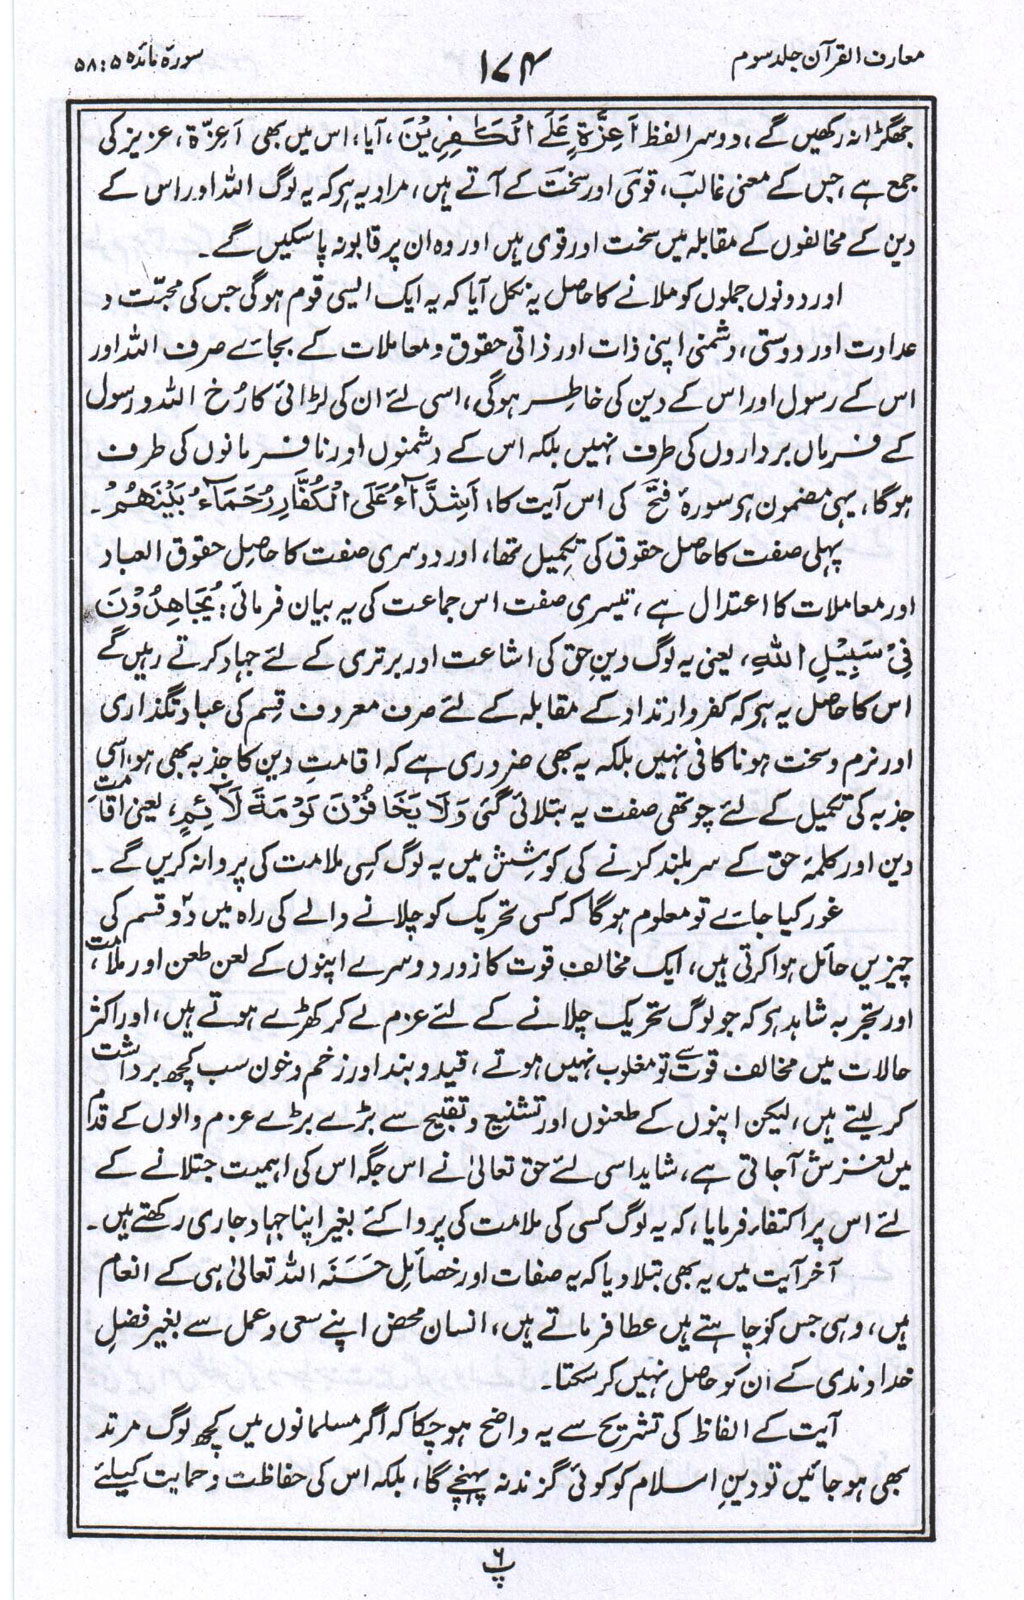 معارف القرآن جلد سوم
۱۷۴
سورۃ مائدہ ۵:۵۸
جھگڑا نہ رکھیں گے، دوسرا لفظ اَعِزَّةٍ عَلَى الْكٰفِرِيْنَ، آیا، اس میں بھی اَعِزّۃ، عزیز کی
جمع ہے، جس کے معنی غالب، قوی اور سخت کے آتے ہیں، مراد یہ ہو کہ یہ لوگ اللہ اور اس کے
دین کے مخالفوں کے مقابلہ میں سخت اور قوی ہیں اور وہ ان پر قابو نہ پا سکیں گے۔
اور دونوں جملوں کو ملانے کا حاصل یہ نکل آیا کہ یہ ایک ایسی قوم ہوگی جس کی محبّت و
عداوت اور دوستی، دشمنی اپنی ذات اور ذاتی حقوق و معاملات کے بجائے صرف اللہ اور
اس کے رسول اور اس کے دین کی خاطر ہوگی، اسی لئے ان کی لڑائی کا رُخ اللہ و رسول
کے فرماں برداروں کی طرف نہیں بلکہ اس کے دشمنوں اور نافرمانوں کی طرف
ہوگا، یہی مضمون ہر سورۂ فتح کی اس آیت کا؛ اَشِدَّآءُ عَلَى الْكُفَّارِ رُحَمَآءُ بَيْنَهُمْ۔
پہلی صفت کا حاصل حقوق کی تکمیل تھا، اور دوسری صفت کا حاصل حقوق العباد
اور معاملات کا اعتدال ہے، تیسری صفت اس جماعت کی یہ بیان فرمائی؛ يُجَاهِدُوْنَ
فِيْ سَبِيْلِ اللهِ، یعنی یہ لوگ دینِ حق کی اشاعت اور برتری کے لئے جہاد کرتے رہیں گے
اس کا حاصل یہ ہو کہ کفر و ارتداد کے مقابلہ کے لئے صرف معروف قسم کی عبادتگذاری
اور نرم و سخت ہونا کافی نہیں بلکہ یہ بھی ضروری ہے کہ اقامتِ دین کا جذبہ بھی ہو، اسی
جذبہ کی تکمیل کے لئے چوتھی صفت یہ بتلائی گئی وَلَا يَخَافُوْنَ لَوْمَةَ لَآئِمٍ، یعنی اقامت
دین اور کلمۂ حق کے سر بلند کرنے کی کوشش میں یہ لوگ کسی ملامت کی پروا نہ کریں گے۔
غور کیا جائے تو معلوم ہوگا کہ کسی تحریک کو چلانے والے کی راہ میں دو قسم کی
چیزیں حائل ہوا کرتی ہیں، ایک مخالف قوت کا زور دوسرے اپنوں کے لعن طعن اور ملامت،
اور تجربہ شاہد ہو کہ جو لوگ تحریک چلانے کے لئے عزم لے کر کھڑے ہوتے ہیں، اور اکثر
حالات میں مخالف قوت سے تو مغلوب نہیں ہوتے، قید و بند اور زخم و خون سب کچھ برداشت
کر لیتے ہیں، لیکن اپنوں کے طعنوں اور تشنیع و تقبیح سے بڑے بڑے عزم والوں کے قدم
میں لغزش آجاتی ہے، شاید اسی لئے حق تعالیٰ نے اس جگہ اس کی اہمیت جتلانے کے
لئے اس پر اکتفاء فرمایا، کہ یہ لوگ کسی کی ملامت کی پروا کئے بغیر اپنا جہاد جاری رکھتے ہیں۔
آخر آیت میں یہ بھی بتلا دیا کہ یہ صفات اور خصائلِ حَسَنَہ اللہ تعالیٰ ہی کے انعام
ہیں، وہی جس کو چاہتے ہیں عطا فرماتے ہیں، انسان محض اپنے سعی و عمل سے بغیر فضلِ
خداوندی کے ان کو حاصل نہیں کر سکتا۔
آیت کے الفاظ کی تشریح سے یہ واضح ہو چکا کہ اگر مسلمانوں میں کچھ لوگ مرتد
بھی ہو جائیں تو دینِ اسلام کو کوئی گزند نہ پہنچے گا، بلکہ اس کی حفاظت و حمایت کیلئے
پ ۶